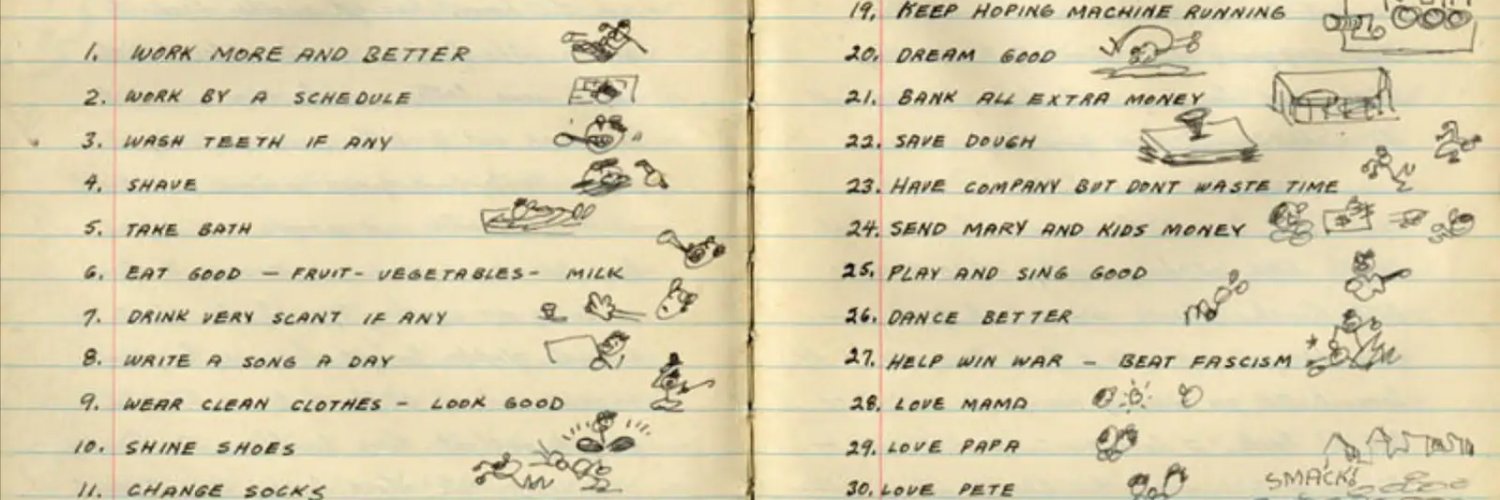 1. WORK MORE AND BETTER
2. WORK BY A SCHEDULE
3. WASH TEETH IF ANY
4. SHAVE
5. TAKE BATH
6. EAT GOOD — FRUIT - VEGETABLES - MILK
7. DRINK VERY SCANT IF ANY
8. WRITE A SONG A DAY
9. WEAR CLEAN CLOTHES - LOOK GOOD
10. SHINE SHOES
11. CHANGE SOCKS
19. KEEP HOPING MACHINE RUNNING
20. DREAM GOOD
21. BANK ALL EXTRA MONEY
22. SAVE DOUGH
23. HAVE COMPANY BUT DONT WASTE TIME
24. SEND MARY AND KIDS MONEY
25. PLAY AND SING GOOD
26. DANCE BETTER
27. HELP WIN WAR - BEAT FASCISM
28. LOVE MAMA
29. LOVE PAPA
SMACK!
30. LOVE PETE